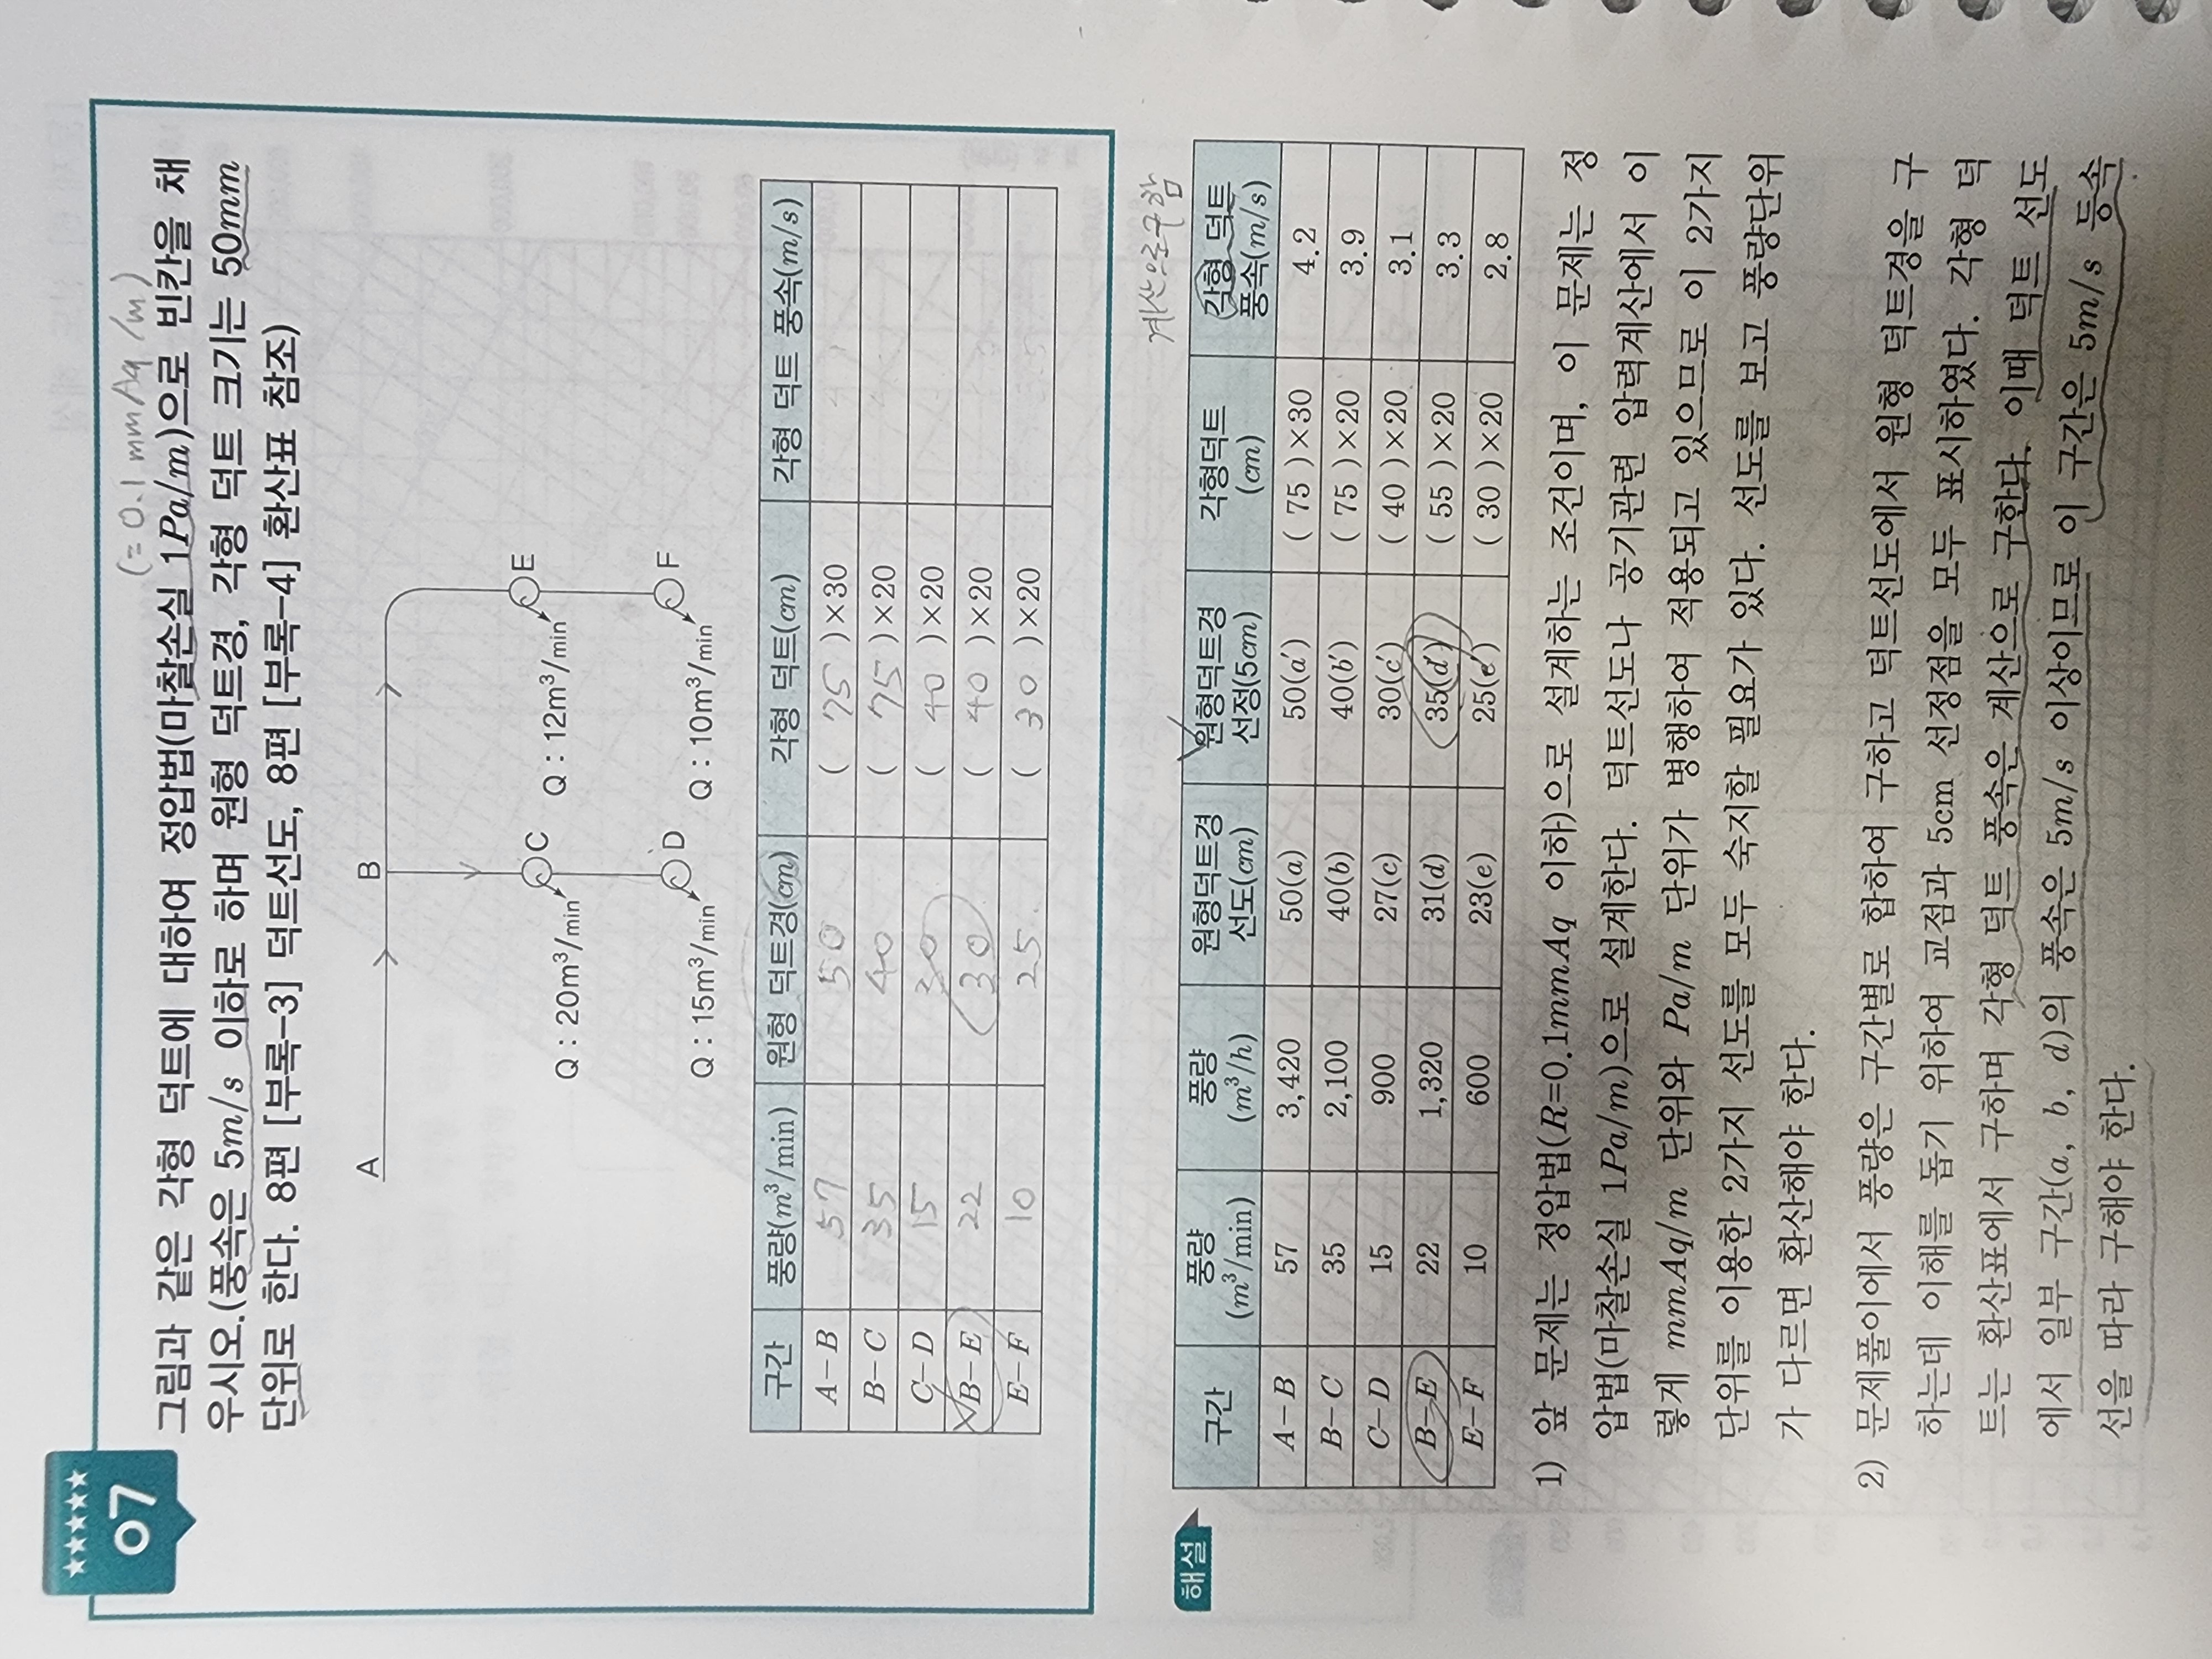 ★★★★★
07
(= 0.1 mmAq/m)
그림과 같은 각형 덕트에 대하여 정압법(마찰손실 1Pa/m)으로 빈칸을 채
우시오.(풍속은 5m/s 이하로 하며 원형 덕트경, 각형 덕트 크기는 50mm
단위로 한다. 8편 [부록-3] 덕트선도, 8편 [부록-4] 환산표 참조)
A B
C E
Q : 20m³/min Q : 12m³/min
D F
Q : 15m³/min Q : 10m³/min
구간 풍량(m³/min) 원형 덕트경(cm) 각형 덕트(cm) 각형 덕트 풍속(m/s)
A-B 57 50 ( 75 )×30
B-C 35 40 ( 75 )×20
C-D 15 30 ( 40 )×20
B-E 22 30 ( 40 )×20
E-F 10 25 ( 30 )×20
계산으로구함
해설
구간 풍량 (m³/min) 풍량 (m³/h) 원형덕트경 선도(cm) 원형덕트경 선정(5cm) 각형덕트 (cm) 각형 덕트 풍속(m/s)
A-B 57 3,420 50(a) 50(a′) ( 75 )×30 4.2
B-C 35 2,100 40(b) 40(b′) ( 75 )×20 3.9
C-D 15 900 27(c) 30(c′) ( 40 )×20 3.1
B-E 22 1,320 31(d) 35(d′) ( 55 )×20 3.3
E-F 10 600 23(e) 25(e′) ( 30 )×20 2.8
1) 앞 문제는 정압법(R=0.1mmAq 이하)으로 설계하는 조건이며, 이 문제는 정
압법(마찰손실 1Pa/m)으로 설계한다. 덕트선도나 공기관련 압력계산에서 이
렇게 mmAq/m 단위와 Pa/m 단위가 병행하여 적용되고 있으므로 이 2가지
단위를 이용한 2가지 선도를 모두 숙지할 필요가 있다. 선도를 보고 풍량단위
가 다르면 환산해야 한다.
2) 문제풀이에서 풍량은 구간별로 합하여 구하고 덕트선도에서 원형 덕트경을 구
하는데 이해를 돕기 위하여 교점과 5cm 선정점을 모두 표시하였다. 각형 덕
트는 환산표에서 구하며 각형 덕트 풍속은 계산으로 구한다. 이때 덕트 선도
에서 일부 구간(a, b, d)의 풍속은 5m/s 이상이므로 이 구간은 5m/s 등속
선을 따라 구해야 한다.